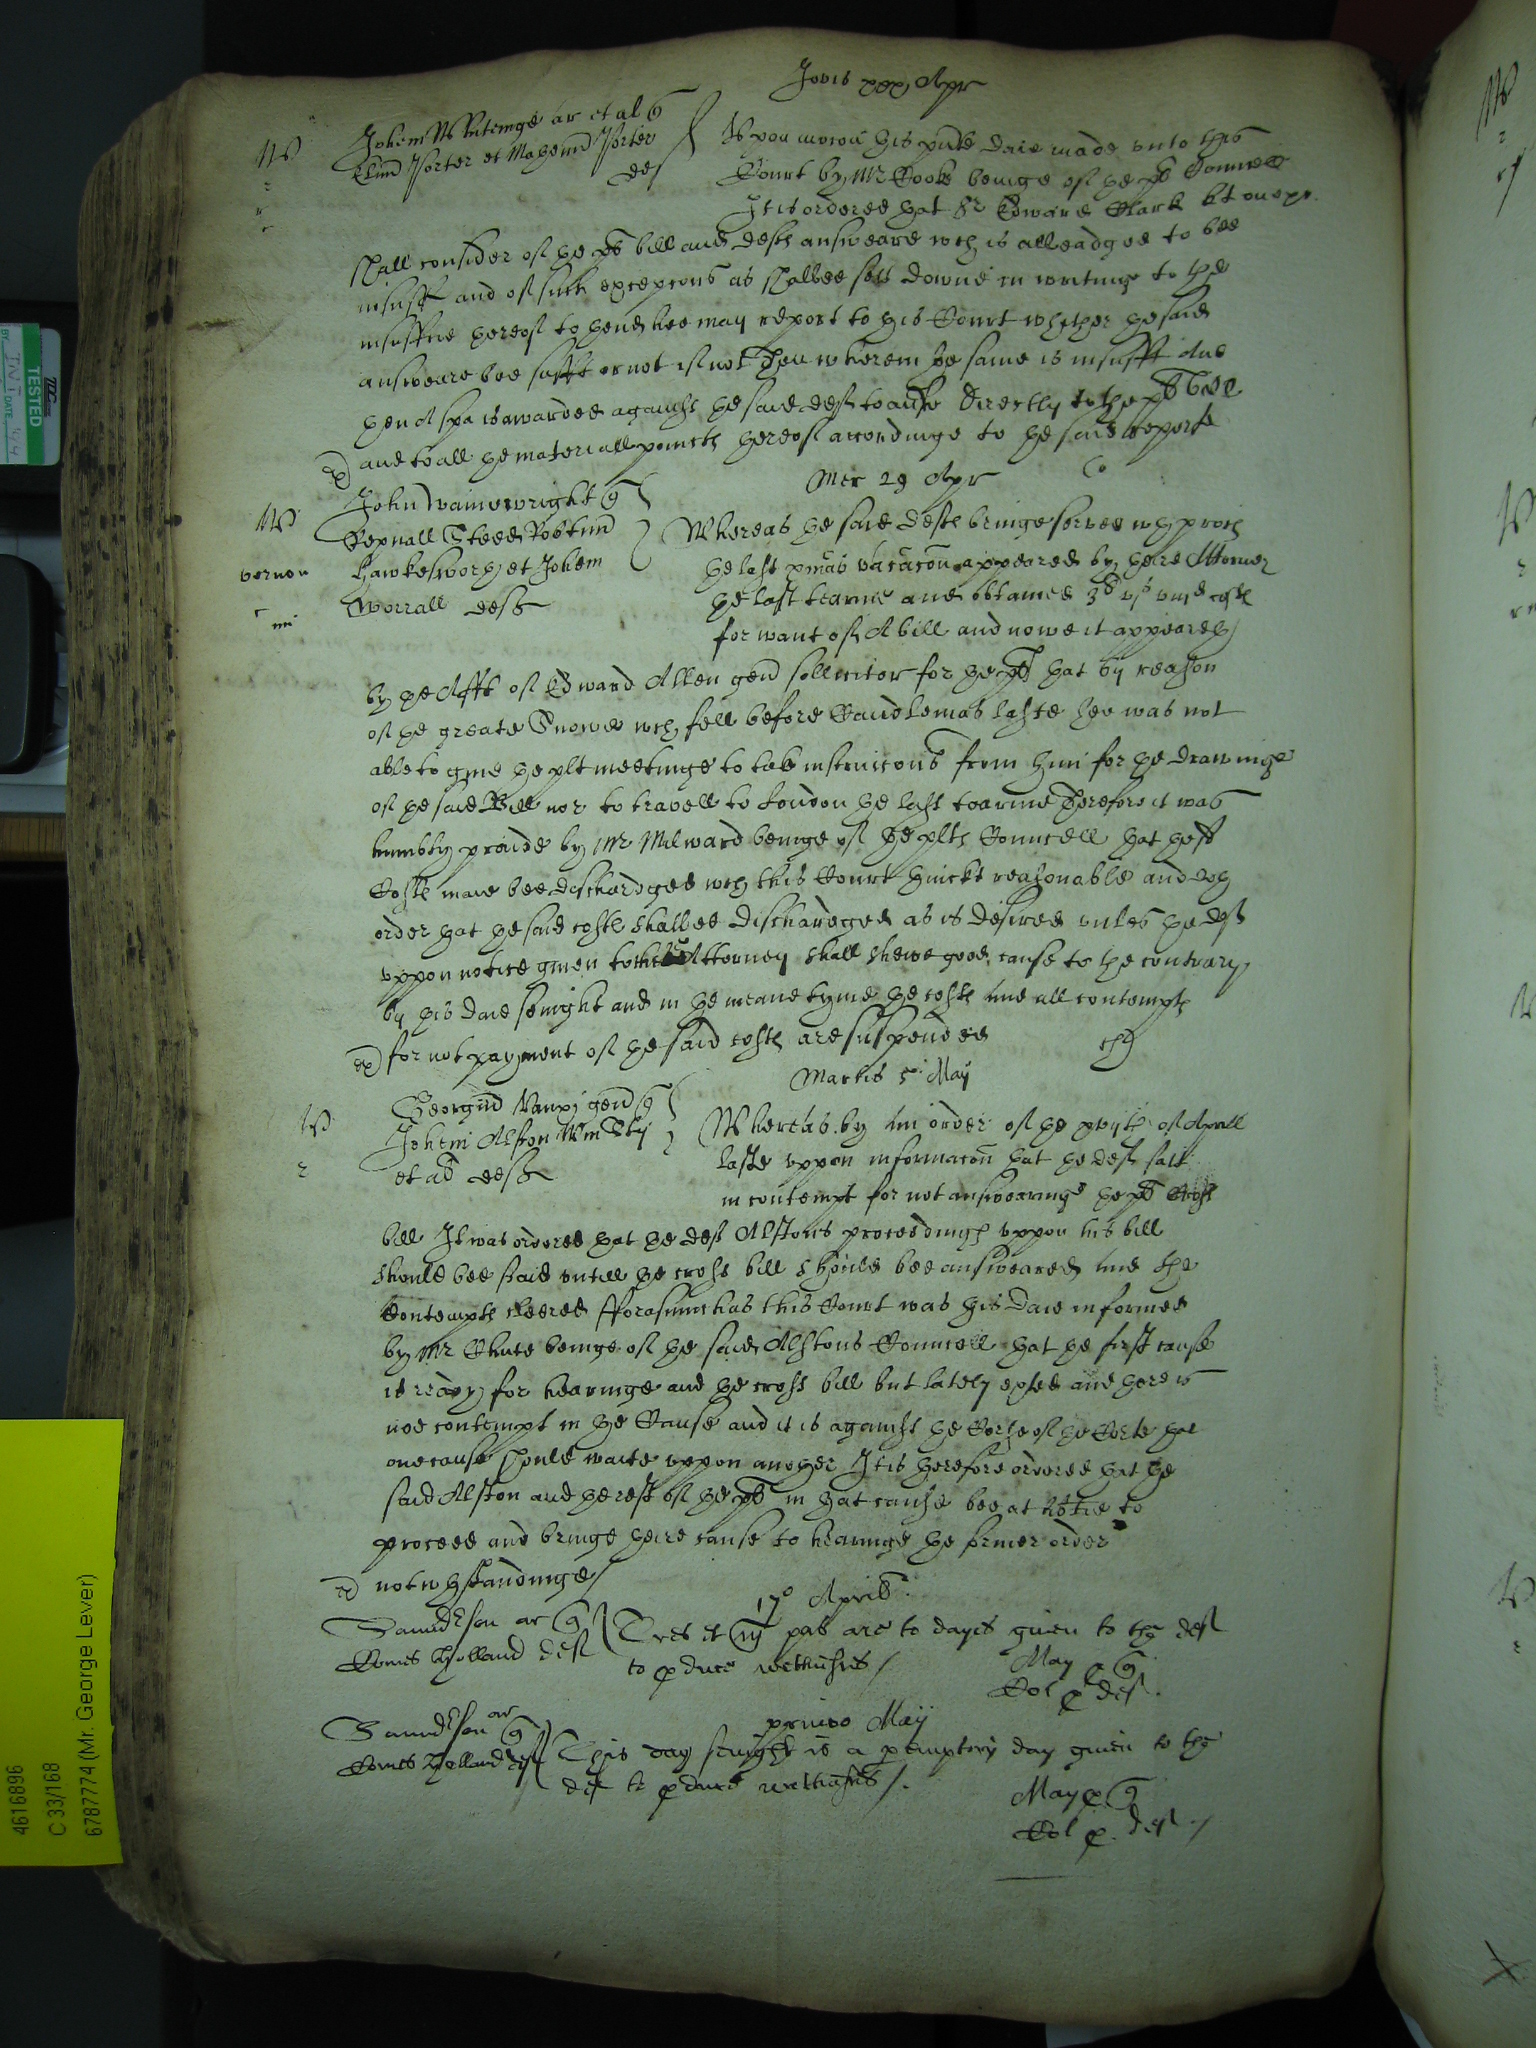 Jovis xxx Apr
W
Johem Whitinge ar et al q
Edm Porter et Mageurd Porter
def
Uppon motion this pnte daie made unto this
Court by Mr Cooke beinge of the pl Councell
It is ordered that Sr Edward Clark kt one &c
shall consider of the pl bill and defts answeare wch is alleadged to bee
insuff and of such excepcons as shalbee sett downe in writinge to the
insufficie thereof to thend hee may report to this Court whether the said
answeare bee suffic or not if not then wherein the same is insuffic And
then A spa is awarded against the said deft to answ directly to the pl bill
and to all the materiall points thereof accordinge to the said reporte
Mer 29 Apr
Co
W
vernon
John Wainwright q
Steed Robtum
Hawkesworth et Johem
Worrall defts
Whereas the said defts beinge served wth proces
the last vacacon appeared by theire Attorney
the last tearme and obtained costs
for want of A bill and nowe it appeareth
by the Afft of Edward Allen gent sollicitor for the pl that by reason
of the greate Snowe wch fell before Candlemas laste hee was not
able to give the plt meetinge to take instruccons from him for the drawinge
of the said Bill nor to travell to London the last tearme Therefore it was
humbly praide by Mr Milward beinge of the plts Councell that the sd
Costs maie bee discharged wch this Court thinks reasonable and doth
order that the said costs shalbee dischardged as is desired unles the deft
uppon notice given to theire Attorney shall shewe good cause to the contrary
by this daie senight and in the meane tyme the costs and all contempts
for not payment of the said costs are suspended
Martis 5 May
W
2
Georgiu gen q
Johem Alston Wm Sky
et al defts
Whereas by an order of the xviijth of Aprill
laste uppon informacon that the deft satt
in contempt for not answearinge the pl Cross
bill It was ordered that the deft Alstons proceedings uppon his bill
should bee staid untill the cross bill should bee answeared and the
Contempts cleered fforasmuch as this Court was this daie informed
by Mr Chute beinge of the said Alstons Councell that the first cause
is readdy for hearinge and the cross bill but lately exhted and there is
noe contempt in the Cause and it is against the Corse of the Corte that
one cause should waite uppon another It is therefore ordered that the
said Alston and the rest of the pl in that cause bee at libtie to
proceed and bringe theire cause to hearinge the former order
notwthstandinge/
17° Aprilis
Samuel son ar q
Comes Holland def
Tres et pas are to dayes given to the def
to pduce wittnesses/
May p q
Col p def.
primo Maij
Samuel son ar q
Comes Holland def
This day senight is a pemptory day given to the
def to pduce wittnesses/.
May p q
Col p. def./
TESTED
DATE
4616896
C 33/168
6787774 (Mr. George Lever)